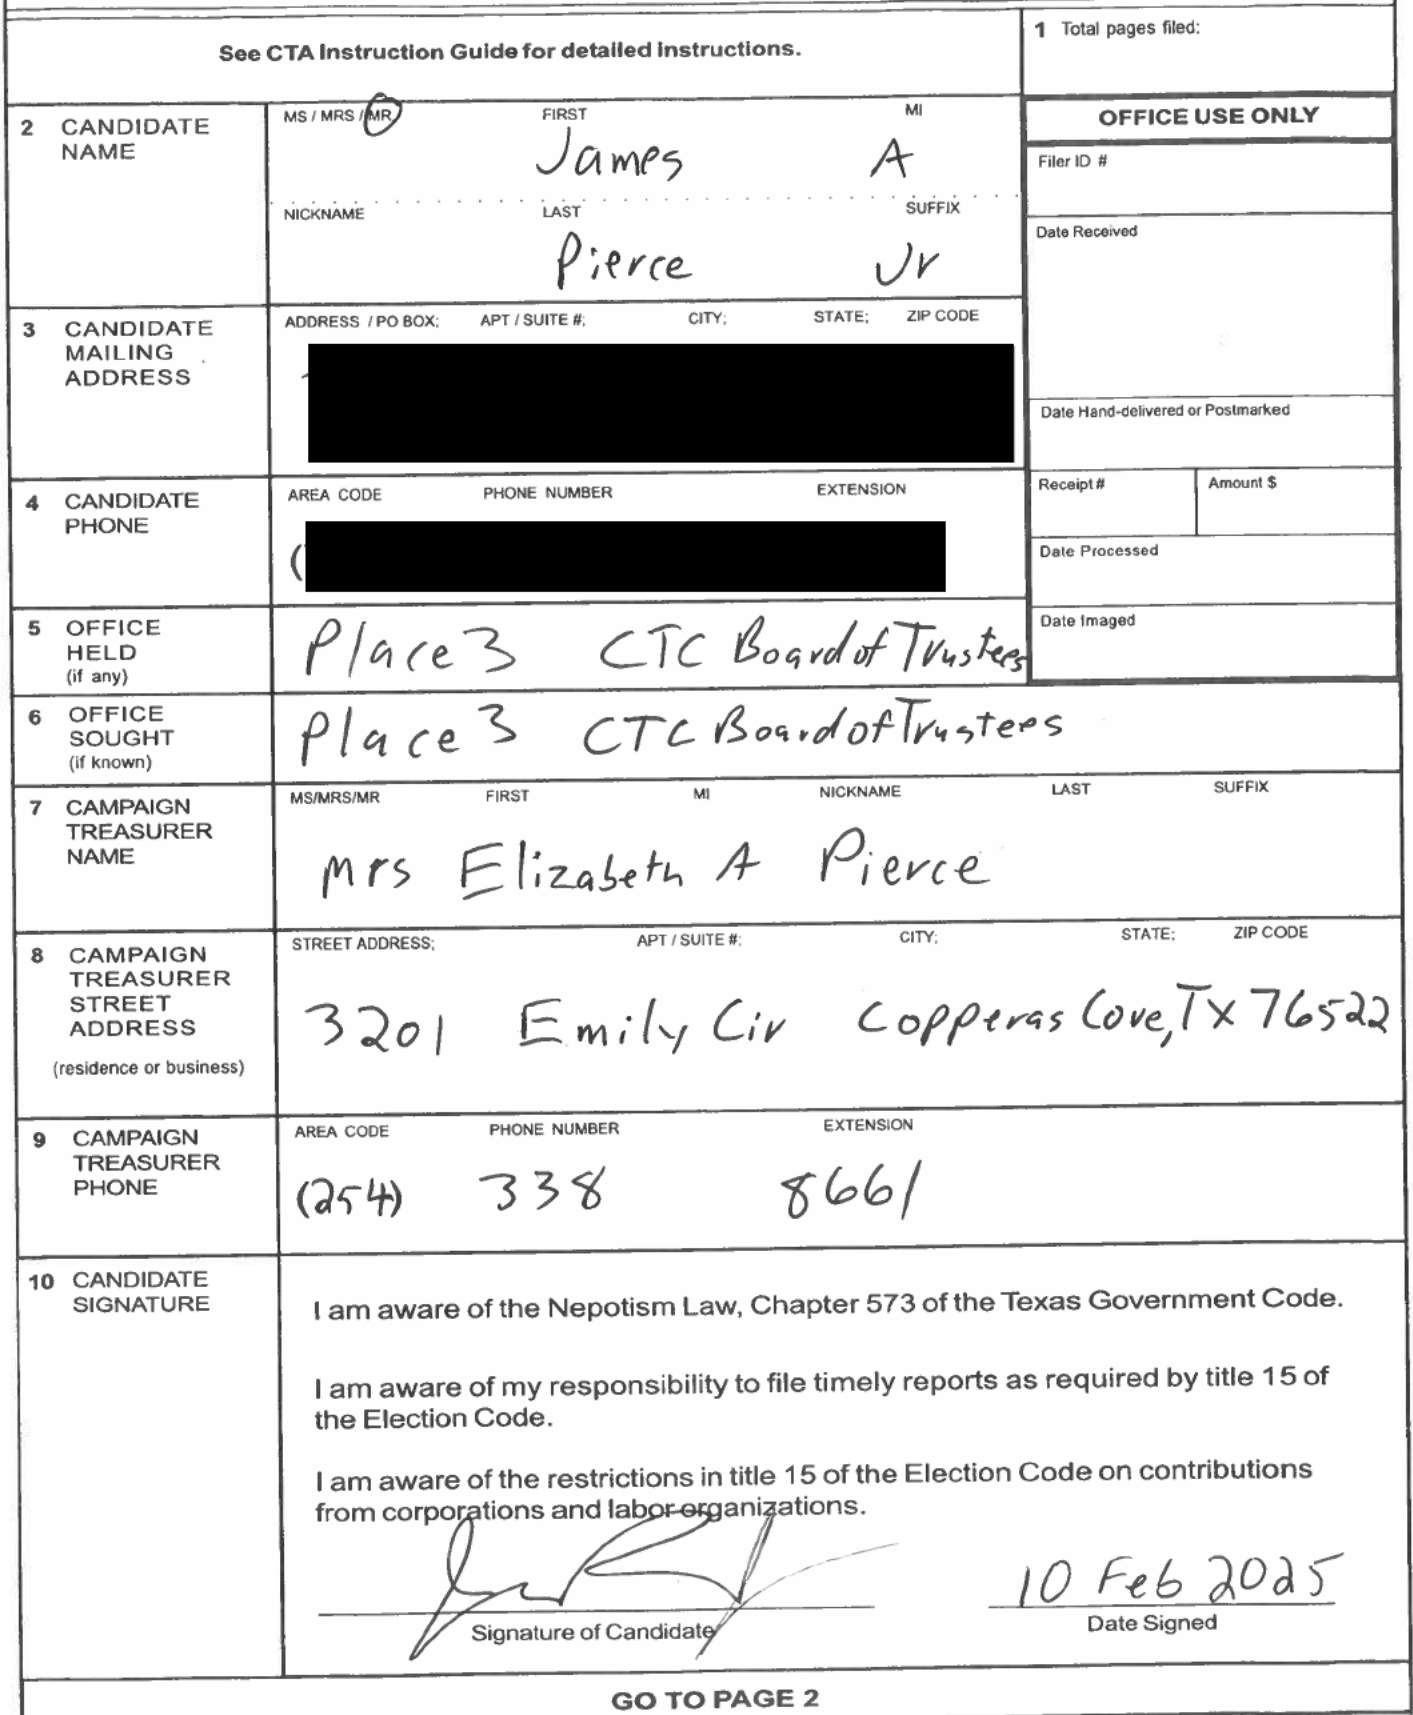 See CTA Instruction Guide for detailed instructions.
1 Total pages filed:
2 CANDIDATE NAME
MS / MRS / MR FIRST MI
James A
NICKNAME LAST SUFFIX
Pierce Jr
OFFICE USE ONLY
Filer ID #
Date Received
3 CANDIDATE MAILING ADDRESS
ADDRESS / PO BOX; APT / SUITE #; CITY; STATE; ZIP CODE
Date Hand-delivered or Postmarked
4 CANDIDATE PHONE
AREA CODE PHONE NUMBER EXTENSION
(
Receipt # Amount $
Date Processed
Date Imaged
5 OFFICE HELD (if any)
Place 3 CTC Board of Trustees
6 OFFICE SOUGHT (if known)
Place 3 CTC Board of Trustees
7 CAMPAIGN TREASURER NAME
MS/MRS/MR FIRST MI NICKNAME LAST SUFFIX
Mrs Elizabeth A Pierce
8 CAMPAIGN TREASURER STREET ADDRESS (residence or business)
STREET ADDRESS; APT / SUITE #; CITY; STATE; ZIP CODE
3201 Emily Cir Copperas Cove, TX 76522
9 CAMPAIGN TREASURER PHONE
AREA CODE PHONE NUMBER EXTENSION
(254) 338 8661
10 CANDIDATE SIGNATURE
I am aware of the Nepotism Law, Chapter 573 of the Texas Government Code.
I am aware of my responsibility to file timely reports as required by title 15 of
the Election Code.
I am aware of the restrictions in title 15 of the Election Code on contributions
from corporations and labor organizations.
10 Feb 2025
Signature of Candidate Date Signed
GO TO PAGE 2